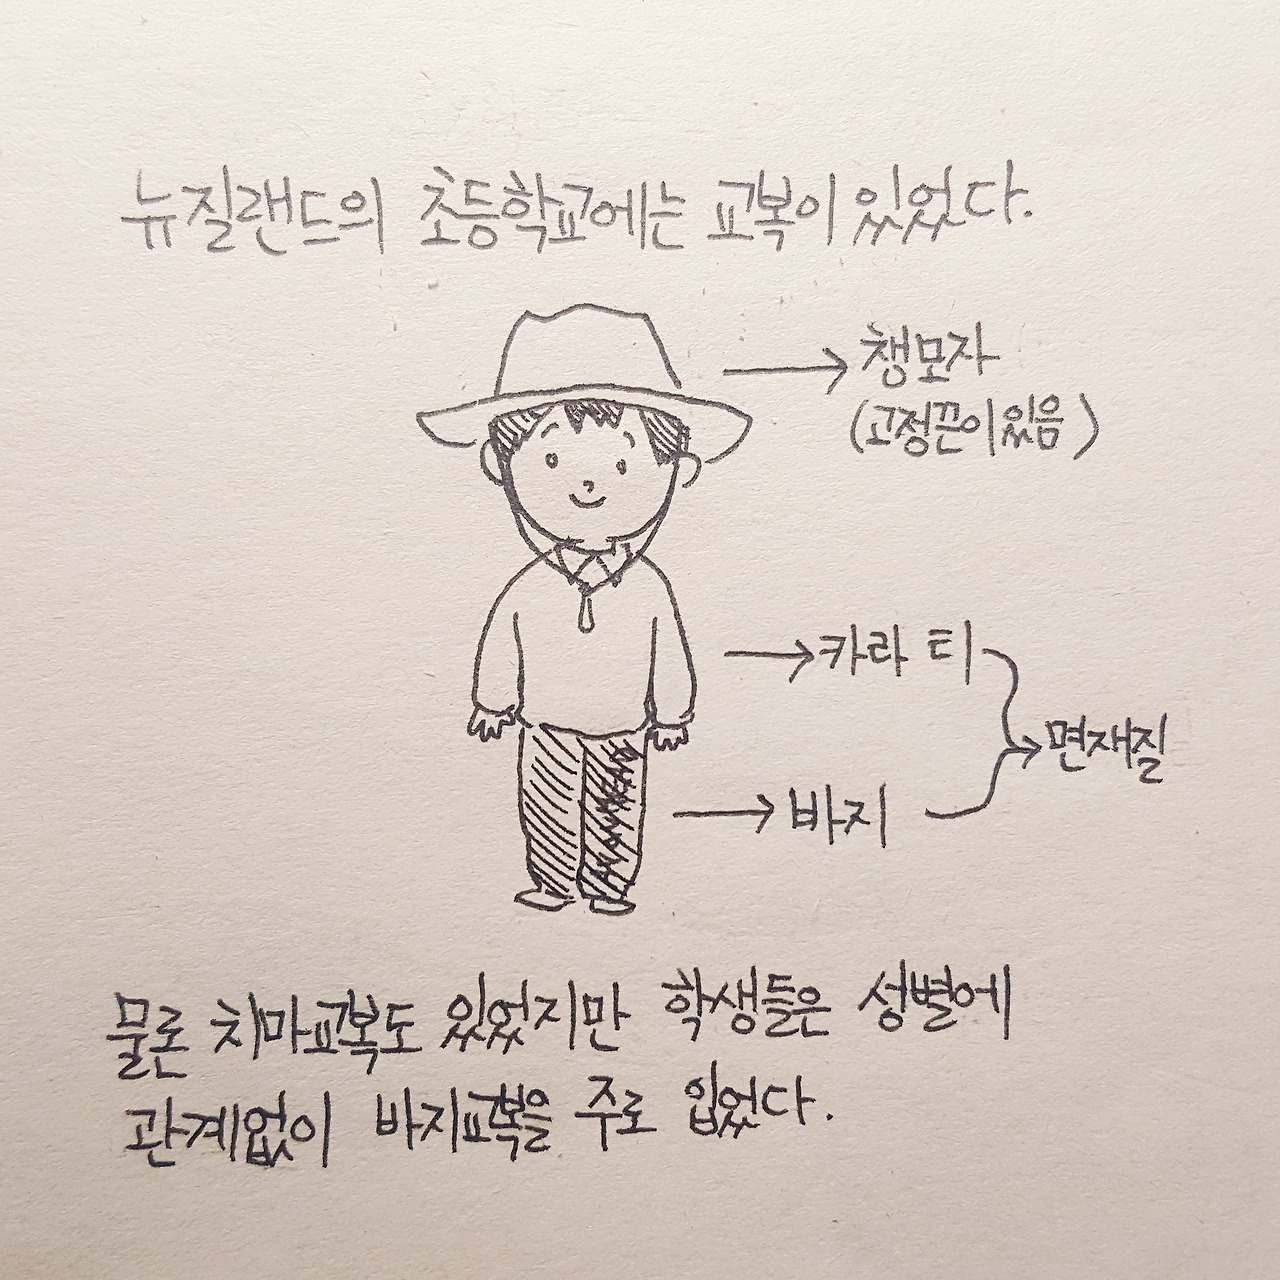 뉴질랜드의 초등학교에는 교복이 있었다.
챙모자
(고정끈이 있음)
카라 티
면재질
바지
물론 치마교복도 있었지만 학생들은 성별에
관계없이 바지교복을 주로 입었다.